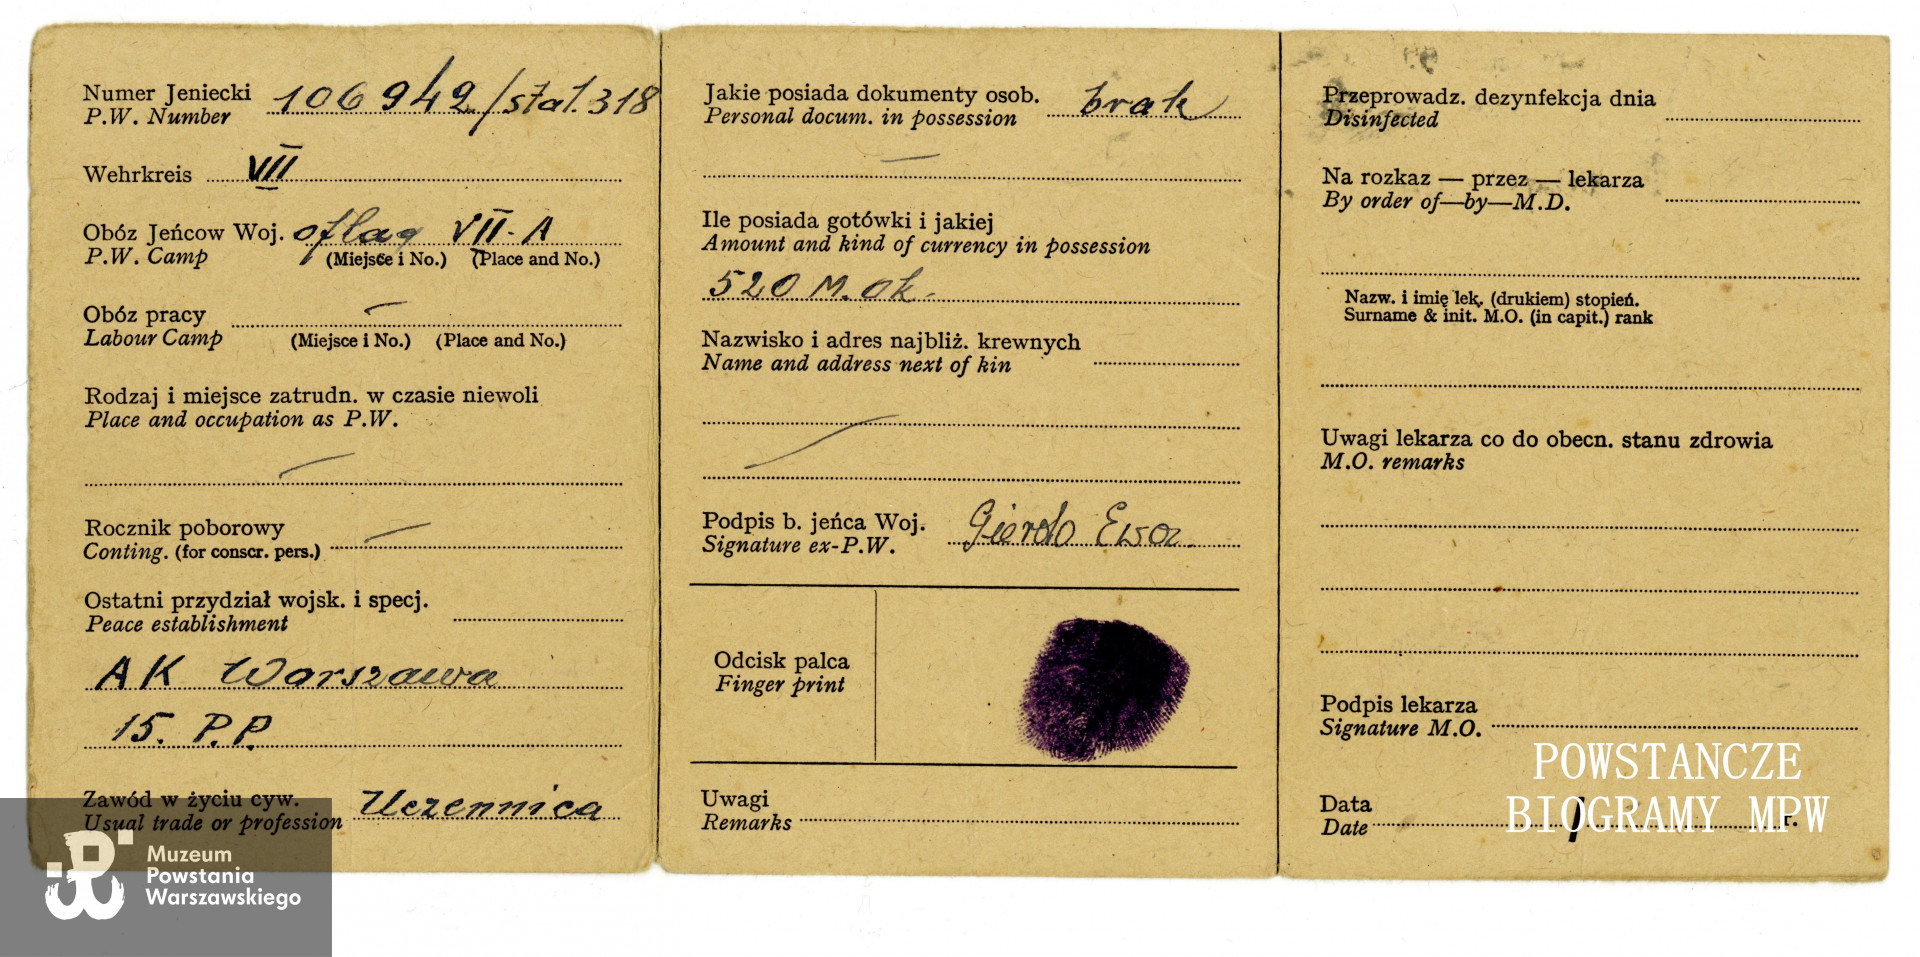 Numer Jeniecki 106942/stal. 318
P.W. Number
Wehrkreis VII
Obóz Jeńcow Woj. oflag VII-A
P.W. Camp (Miejsce i No.) (Place and No.)
Obóz pracy —
Labour Camp (Miejsce i No.) (Place and No.)
Rodzaj i miejsce zatrudn. w czasie niewoli
Place and occupation as P.W.
—
Rocznik poborowy —
Conting. (for conscr. pers.)
Ostatni przydział wojsk. i specj.
Peace establishment
AK Warszawa
15. P.P.
Zawód w życiu cyw. Uczennica
Usual trade or profession
Jakie posiada dokumenty osob. brak
Personal docum. in possession
—
Ile posiada gotówki i jakiej
Amount and kind of currency in possession
520 M. ok.
Nazwisko i adres najbliż. krewnych
Name and address next of kin
—
Podpis b. jeńca Woj. Ewa
Signature ex-P.W.
Odcisk palca
Finger print
Uwagi
Remarks
Przeprowadz. dezynfekcja dnia
Disinfected
Na rozkaz — przez — lekarza
By order of—by—M.D.
Nazw. i imię lek. (drukiem) stopień.
Surname & init. M.O. (in capit.) rank
Uwagi lekarza co do obecn. stanu zdrowia
M.O. remarks
Podpis lekarza
Signature M.O.
Data
Date r.
Muzeum
Powstania
Warszawskiego
POWSTANCZE
BIOGRAMY MPW